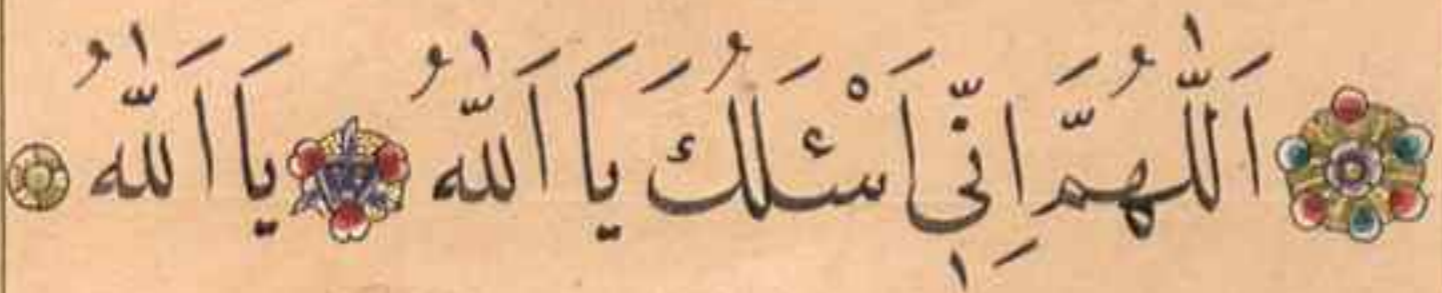 اَللّٰهُمَّ اِنّ۪ي اَسْئَلُكَ يَا اَللّٰهُ يَا اَللّٰهُ